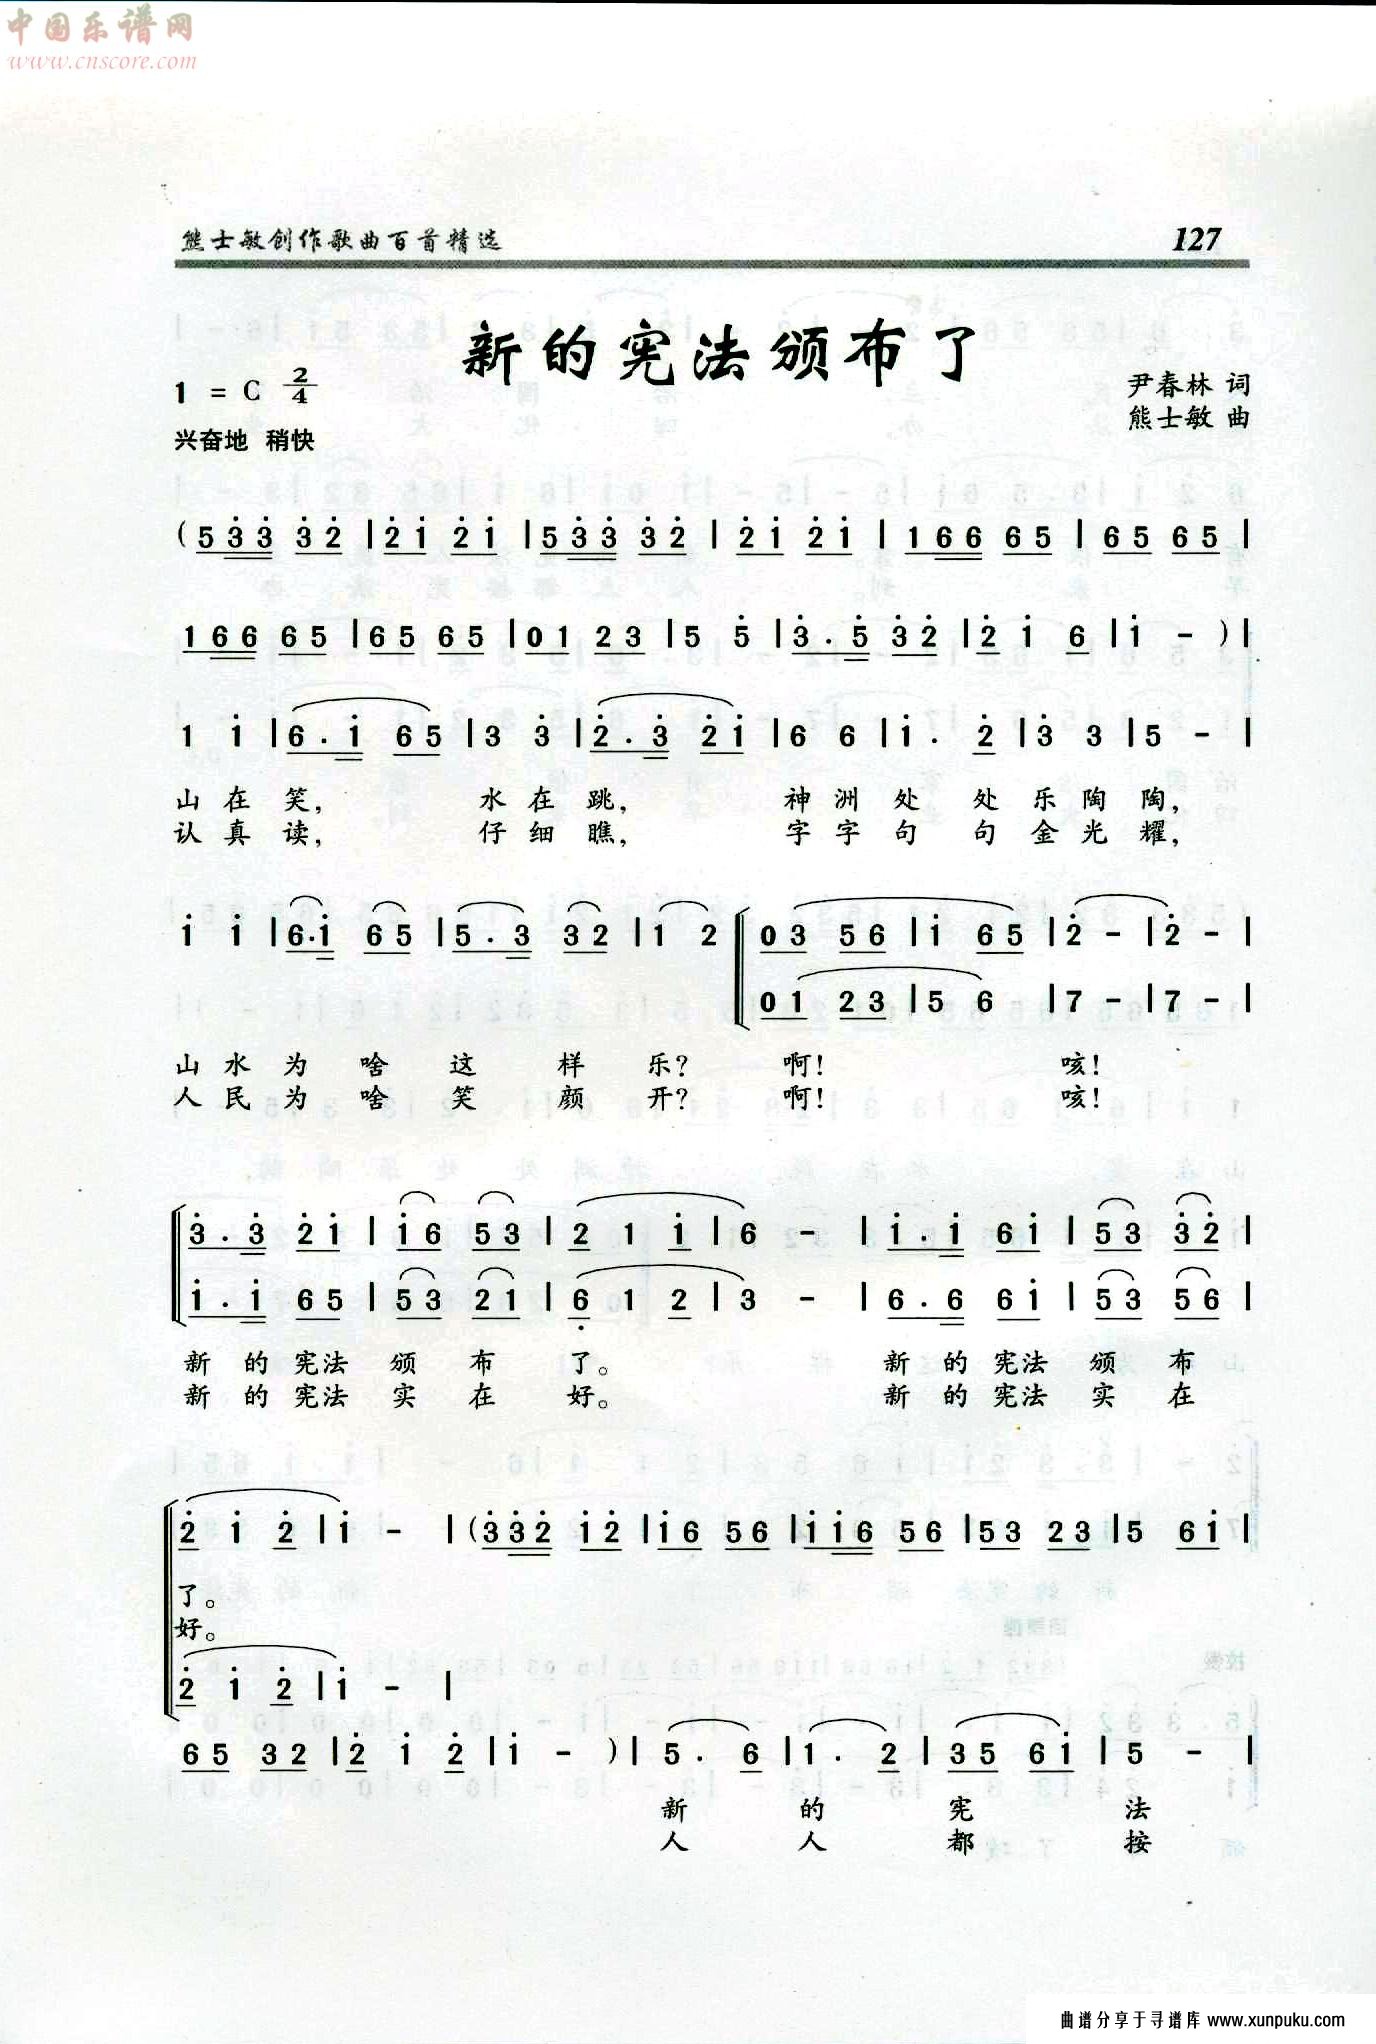 中国乐谱网
www.cnscore.com
熊士敏创作歌曲百首精选 127
新的宪法颁布了
1 = C 2/4
尹春林 词
兴奋地 稍快
熊士敏 曲
( 5 3̇ 3̇ 3̇ 2̇ | 2̇ 1̇ 2̇ 1̇ | 5 3̇ 3̇ 3̇ 2̇ | 2̇ 1̇ 2̇ 1̇ | 1 6 6 6 5 | 6 5 6 5 |
1 6 6 6 5 | 6 5 6 5 | 0 1 2 3 | 5 5̇ | 3̇ . 5̇ 3̇ 2̇ | 2̇ 1̇ 6 | 1̇ - ) |
1 1̇ | 6 . 1̇ 6 5 | 3 3̇ | 2̇ . 3̇ 2̇ 1̇ | 6 6 | 1̇ . 2̇ | 3 3 | 5 - |
山在笑， 水在跳， 神洲处处乐陶陶，
认真读， 仔细瞧， 字字句句金光耀，
1̇ 1̇ | 6 . 1̇ 6 5 | 5 . 3 3 2 | 1 2 | 0 3 5 6 | 1̇ 6 5 | 2̇ - | 2̇ - |
0 1 2 3 | 5 6 | 7 - | 7 - |
山水为啥这样乐？ 啊！ 咳！
人民为啥笑颜开？ 啊！ 咳！
3̇ . 3̇ 2̇ 1̇ | 1̇ 6 5 3 | 2 1 1̇ | 6 - | 1̇ . 1̇ 6 1̇ | 5 3 3̇ 2̇ |
1̇ . 1̇ 6 5 | 5 3 2 1 | 6̣ 1 2 | 3 - | 6 . 6 6 1̇ | 5 3 5 6 |
新的宪法颁布了。 新的宪法颁布
新的宪法实在好。 新的宪法实在
2̇ 1̇ 2̇ | 1̇ - | ( 3̇ 3̇ 2̇ 1̇ 2̇ | 1̇ 6 5 6 | 1̇ 1̇ 6 5 6 | 5 3 2 3 | 5 6 1̇ |
了。
好。
2̇ 1̇ 2̇ | 1̇ - |
6 5 3 2 | 2̇ 1̇ 2̇ | 1̇ - ) | 5 . 6 | 1 . 2 | 3 5 6 1̇ | 5 - |
新的宪法
人人都按
曲谱分享于寻谱库 www.xunpuku.com